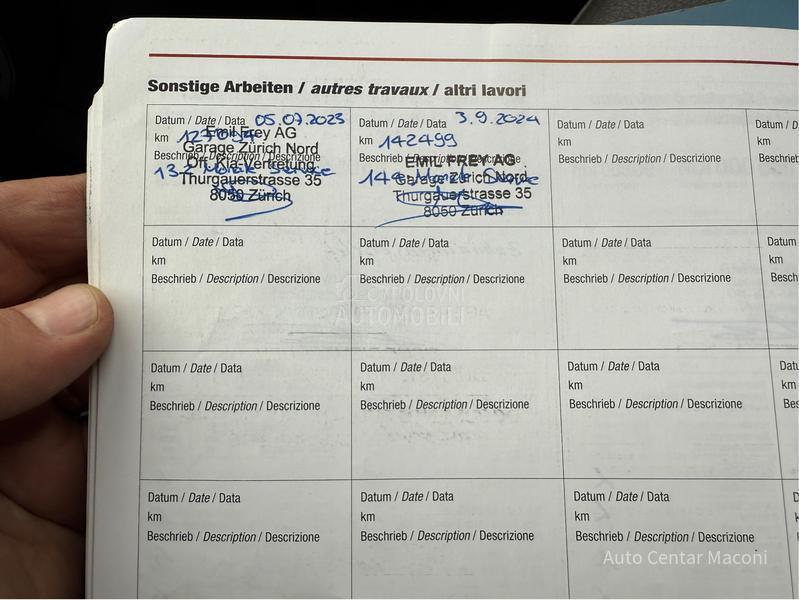 Sonstige Arbeiten / autres travaux / altri lavori
Datum / Date / Data 05.07.2023
km
Beschrieb / Description / Descrizione
Emil Frey AG
Garage Zürich Nord
Off. Kia-Vertretung
Thurgauerstrasse 35
8050 Zürich
Datum / Date / Data 3.9.2024
km 142499
Beschrieb / Description / Descrizione
EMIL FREY AG
Garage Zürich Nord
Thurgauerstrasse 35
8050 Zürich
Datum / Date / Data
km
Beschrieb / Description / Descrizione
Datum / D
km
Beschrieb
Datum / Date / Data
km
Beschrieb / Description / Descrizione
Datum / Date / Data
km
Beschrieb / Description / Descrizione
Datum / Date / Data
km
Beschrieb / Description / Descrizione
Datum
km
Beschrieb
POLOVNI
AUTOMOBILI
Datum / Date / Data
km
Beschrieb / Description / Descrizione
Datum / Date / Data
km
Beschrieb / Description / Descrizione
Datum / Date / Data
km
Beschrieb / Description / Descrizione
km
Datum / Date / Data
km
Beschrieb / Description / Descrizione
Datum / Date / Data
km
Beschrieb / Description / Descrizione
Datum / Date / Data
km
Beschrieb / Description / Descrizione
Auto Centar Maconi